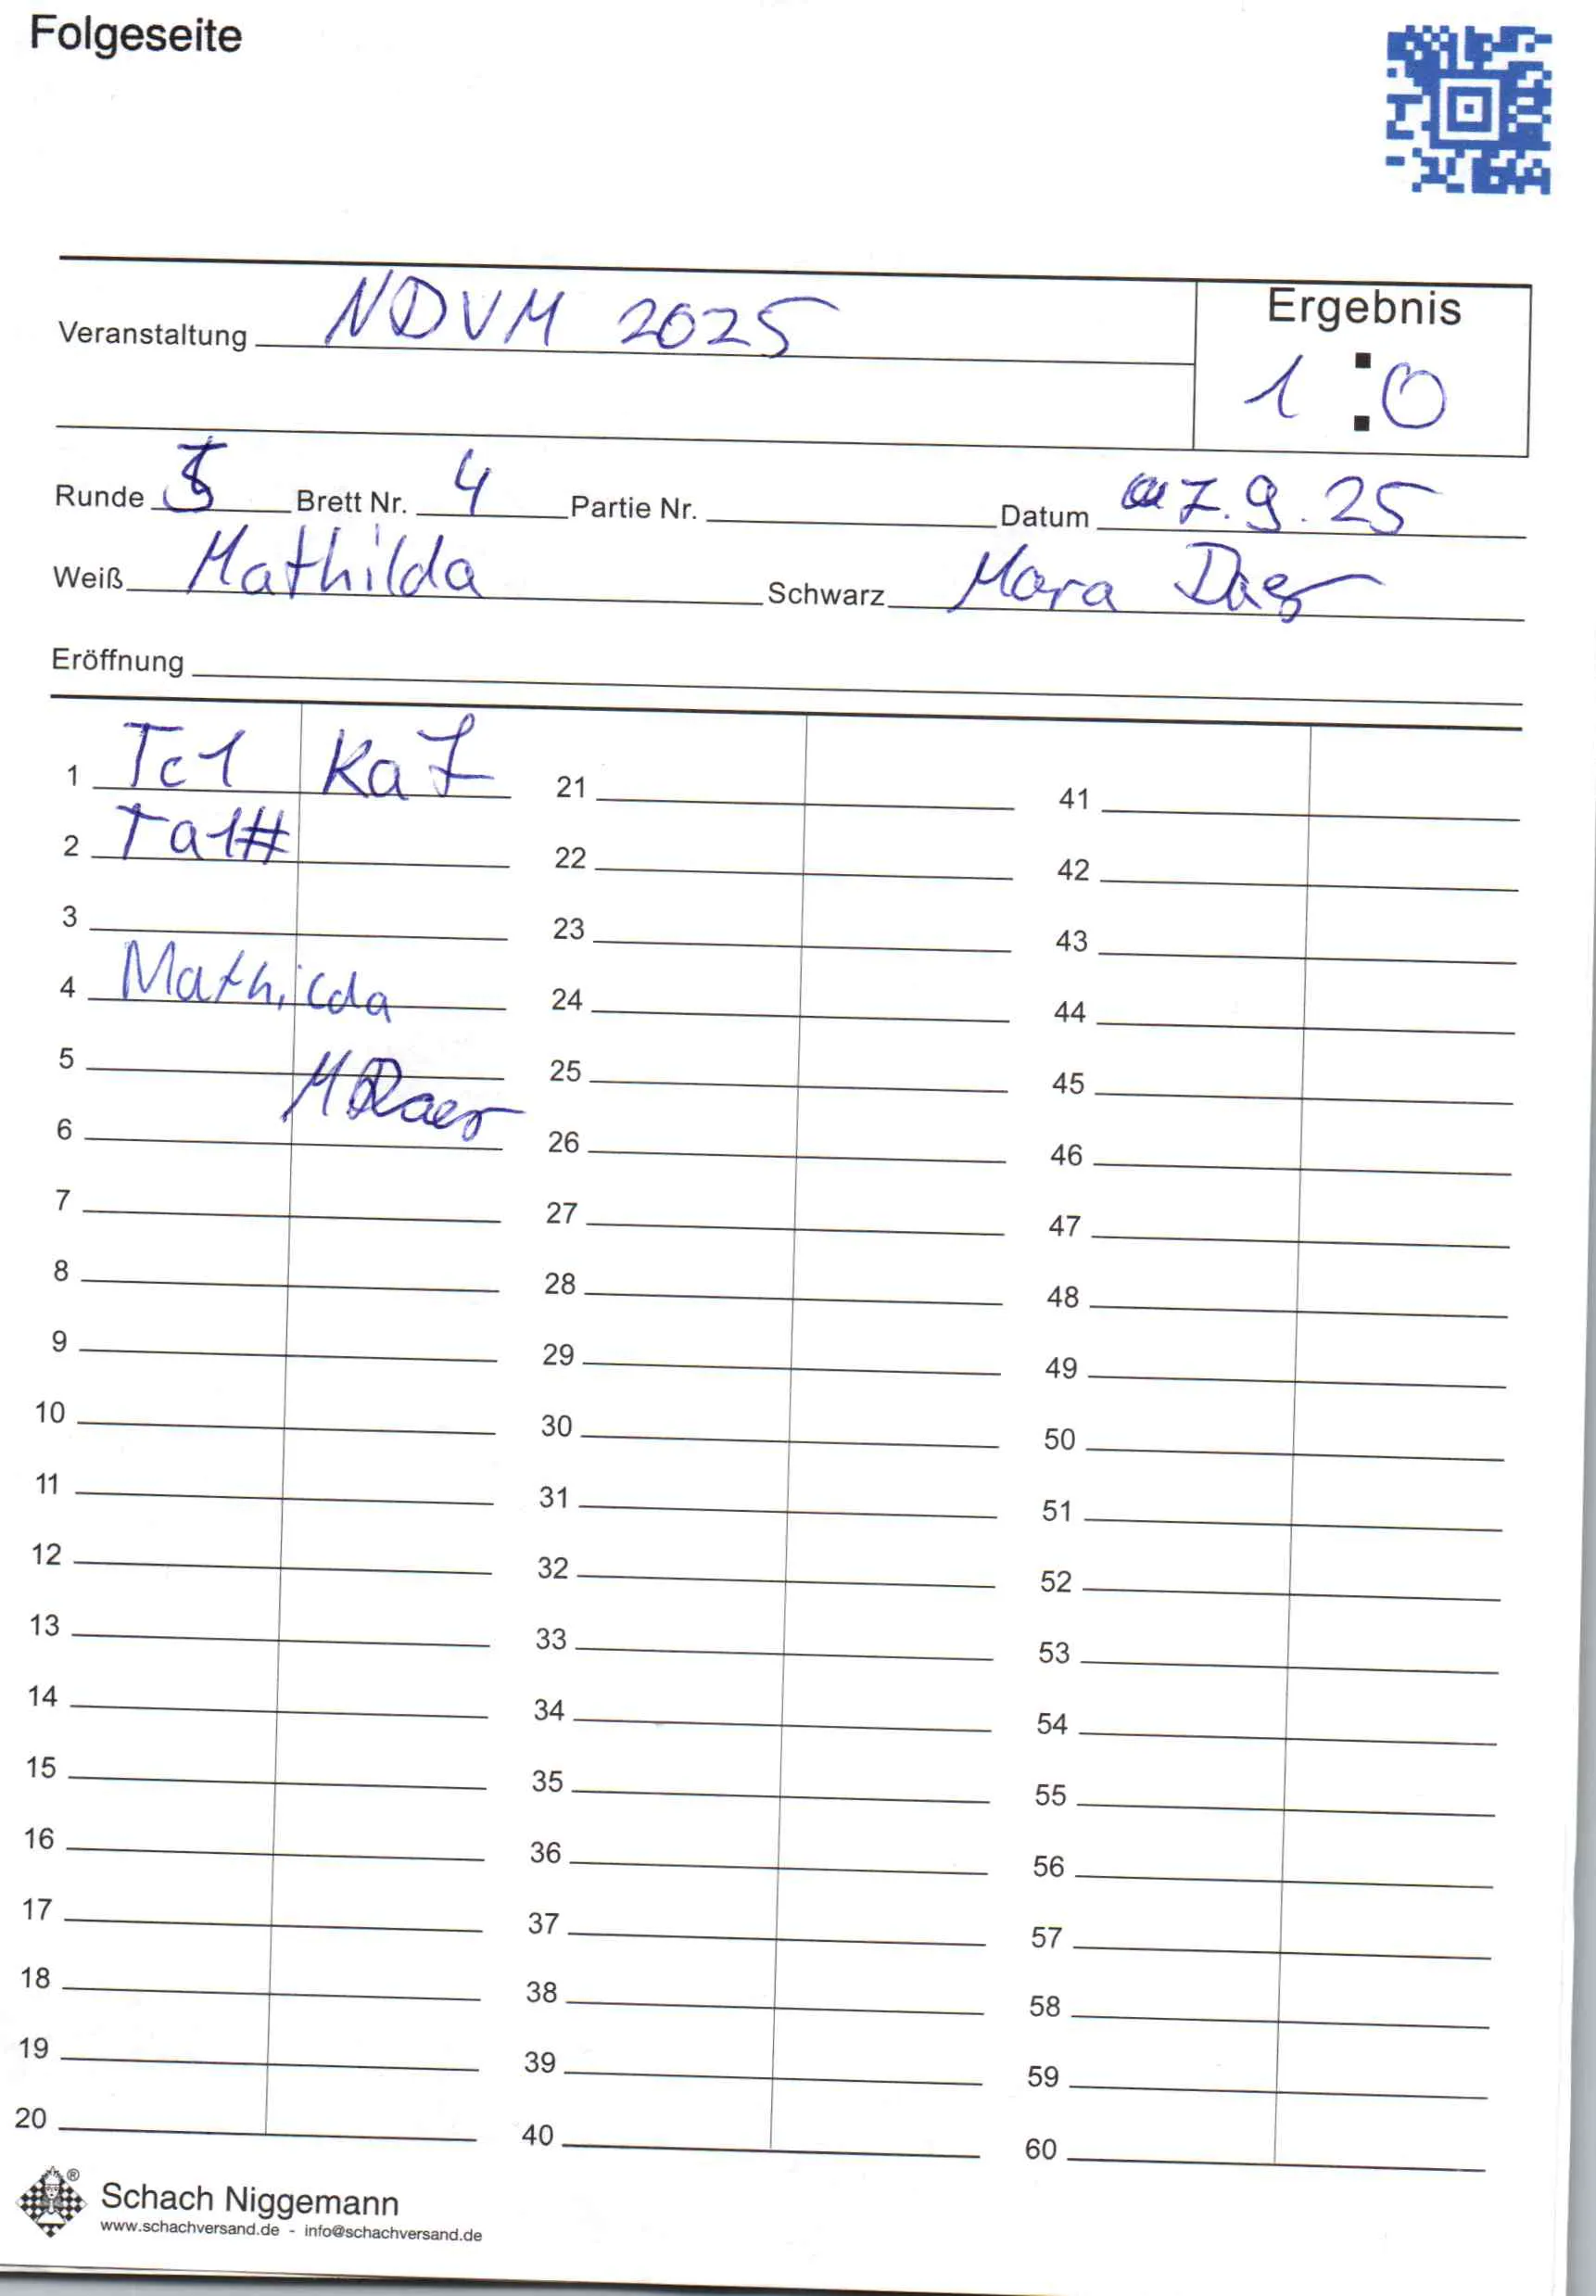 Folgeseite
Veranstaltung NDVM 2025
Ergebnis
1 : 0
Runde 5 Brett Nr. 4 Partie Nr. Datum 7.9.25
Weiß Mathilda Schwarz Mara
Eröffnung
1 Tc1 Ka7 21 41
2 Ta1# 22 42
3 23 43
4 Mathilda 24 44
5 25 45
6 26 46
7 27 47
8 28 48
9 29 49
10 30 50
11 31 51
12 32 52
13 33 53
14 34 54
15 35 55
16 36 56
17 37 57
18 38 58
19 39 59
20 40 60
® Schach Niggemann
www.schachversand.de - info@schachversand.de